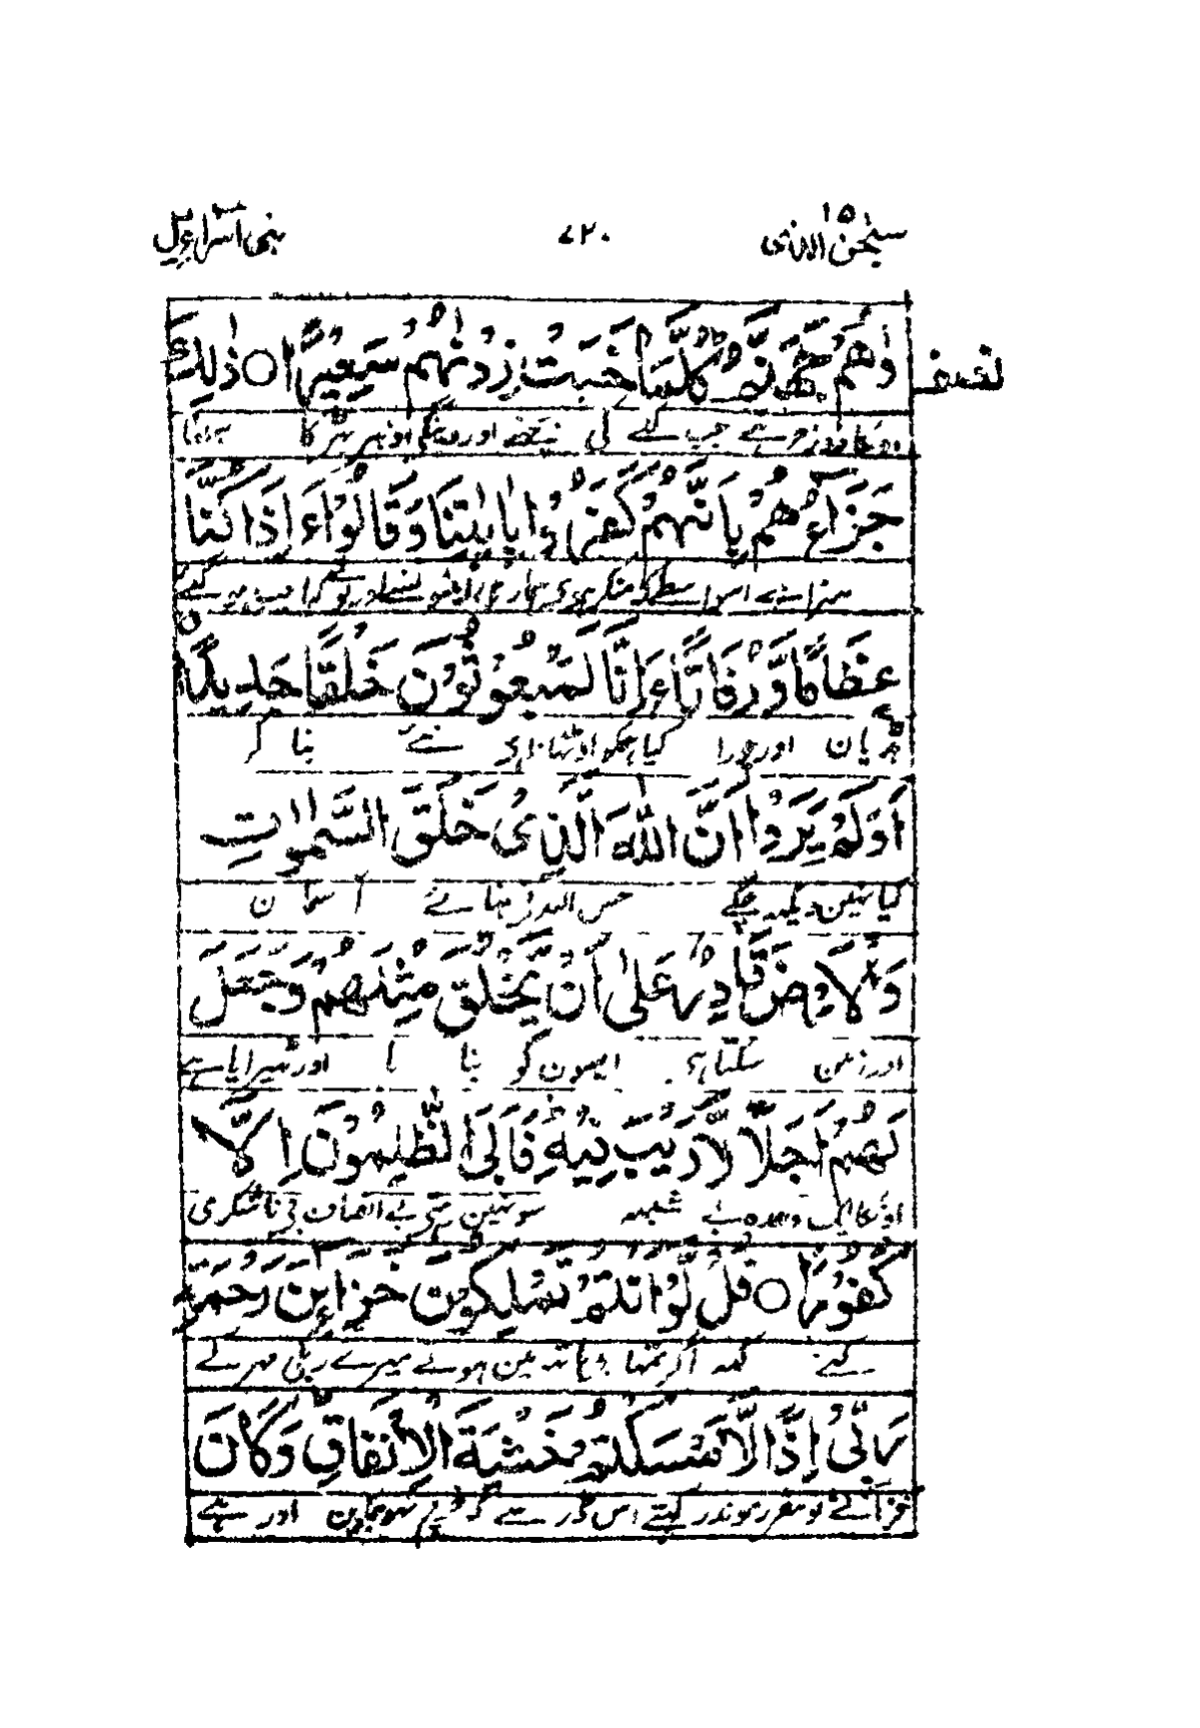 سبحن الذی ۱۵
۷۲۰
بنی اسراءیل
نصف
وٰىهُمْ جَهَنَّمُ كُلَّمَا خَبَتْ زِدْنٰهُمْ سَعِيْرًا ○ ذٰلِكَ
دوزخ ہے جب لگے گی بجھنے اور دینگے اونپر بھڑکا
جَزَآءُهُمْ بِاَنَّهُمْ كَفَرُوْا بِاٰيٰتِنَا وَقَالُوْٓا ءَاِذَا كُنَّا
سزا ہے اسواسطے کہ منکر ہوی ہماری ایتوں سے اور بولے کیا جب ہوگئے
عِظَامًا وَّرُفَاتًا ءَاِنَّا لَمَبْعُوْثُوْنَ خَلْقًا جَدِيْدًا ○
ہڈیان اور چورا کیا ہمکو اوٹھانا ہی نئے بنا کر
اَوَلَمْ يَرَوْا اَنَّ اللّٰهَ الَّذِىْ خَلَقَ السَّمٰوٰتِ
کیا نہین دیکھ چکے جس اللہ نے بنائے آسمان
وَالْاَرْضَ قَادِرٌ عَلٰٓى اَنْ يَّخْلُقَ مِثْلَهُمْ وَجَعَلَ
اور زمین سکتا ہی ایسون کو بنانا اور ٹھیرایا ہے
لَهُمْ اَجَلًا لَّا رَيْبَ فِيْهِ فَاَبَى الظّٰلِمُوْنَ اِلَّا
اونکا ایک وعدہ بے شبھہ سو نہین رہتی بے انصاف بن ناشکری
كُفُوْرًا ○ قُلْ لَّوْ اَنْتُمْ تَمْلِكُوْنَ خَزَآءِنَ رَحْمَةِ
کئے کہہ اگر تمہارے ہاتھ مین ہوتے میرے ربکی مہر کے
رَبِّىْٓ اِذًا لَّاَمْسَكْتُمْ خَشْيَةَ الْاِنْفَاقِ وَكَانَ
خزانے تو مقرر موندر کہتے اس ڈر سے کہ خرچ نہو جاوین اور ہے